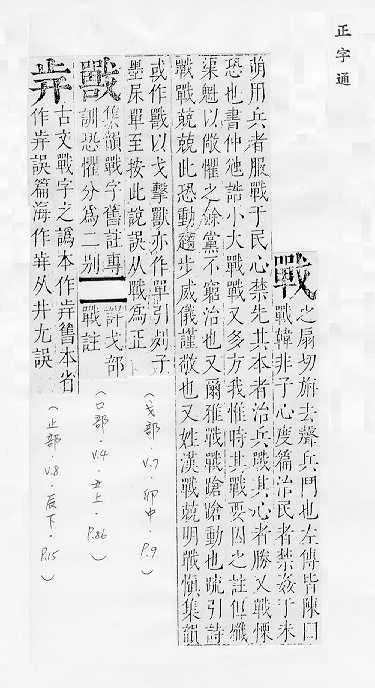 正字通
戰之扇切旃去聲兵鬥也左傳皆陳曰
戰韓非子心度篇治民者禁姦于未
萌用兵者服戰于民心禁先其本者治兵戰其心者勝又戰慄
恐也書仲虺誥小大戰戰又多方我惟時其戰要囚之註但殲
渠魁以儆懼之餘黨不窮治也又爾雅戰戰蹌蹌動也疏引詩
戰戰兢兢此恐動趨步威儀謹敬也又姓漢戰兢明戰慎集韻
或作以戈擊獸亦作單引列子
墨杘單至按此說誤从戰爲正
集韻戰字舊註專
訓恐懼分爲二別 詳戈部
戰註
古文戰字之譌本作舊本省
作誤篇海作从井尤誤
(戈部．V.7．卯中．P.9)
(口部．V.4．丑上．P.86)
(止部．V.8．辰下．P.15)